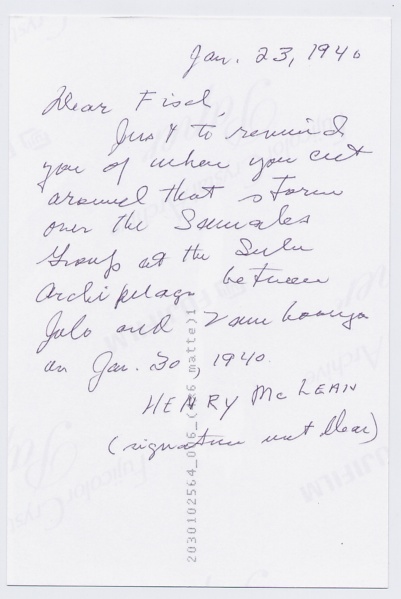 Jan. 23, 1940
Dear Fisch,
Just to remind
you of when you cut
around that storm
over the Samales
Group at the Sulu
Archipelago between
Jolo and Zamboanga
on Jan. 30, 1940.
HENRY McLEAN
(signature not clear)
2030102564_006_(4x6 matte)1
FUJIFILM
Fujicolor Crystal
Archive
Paper